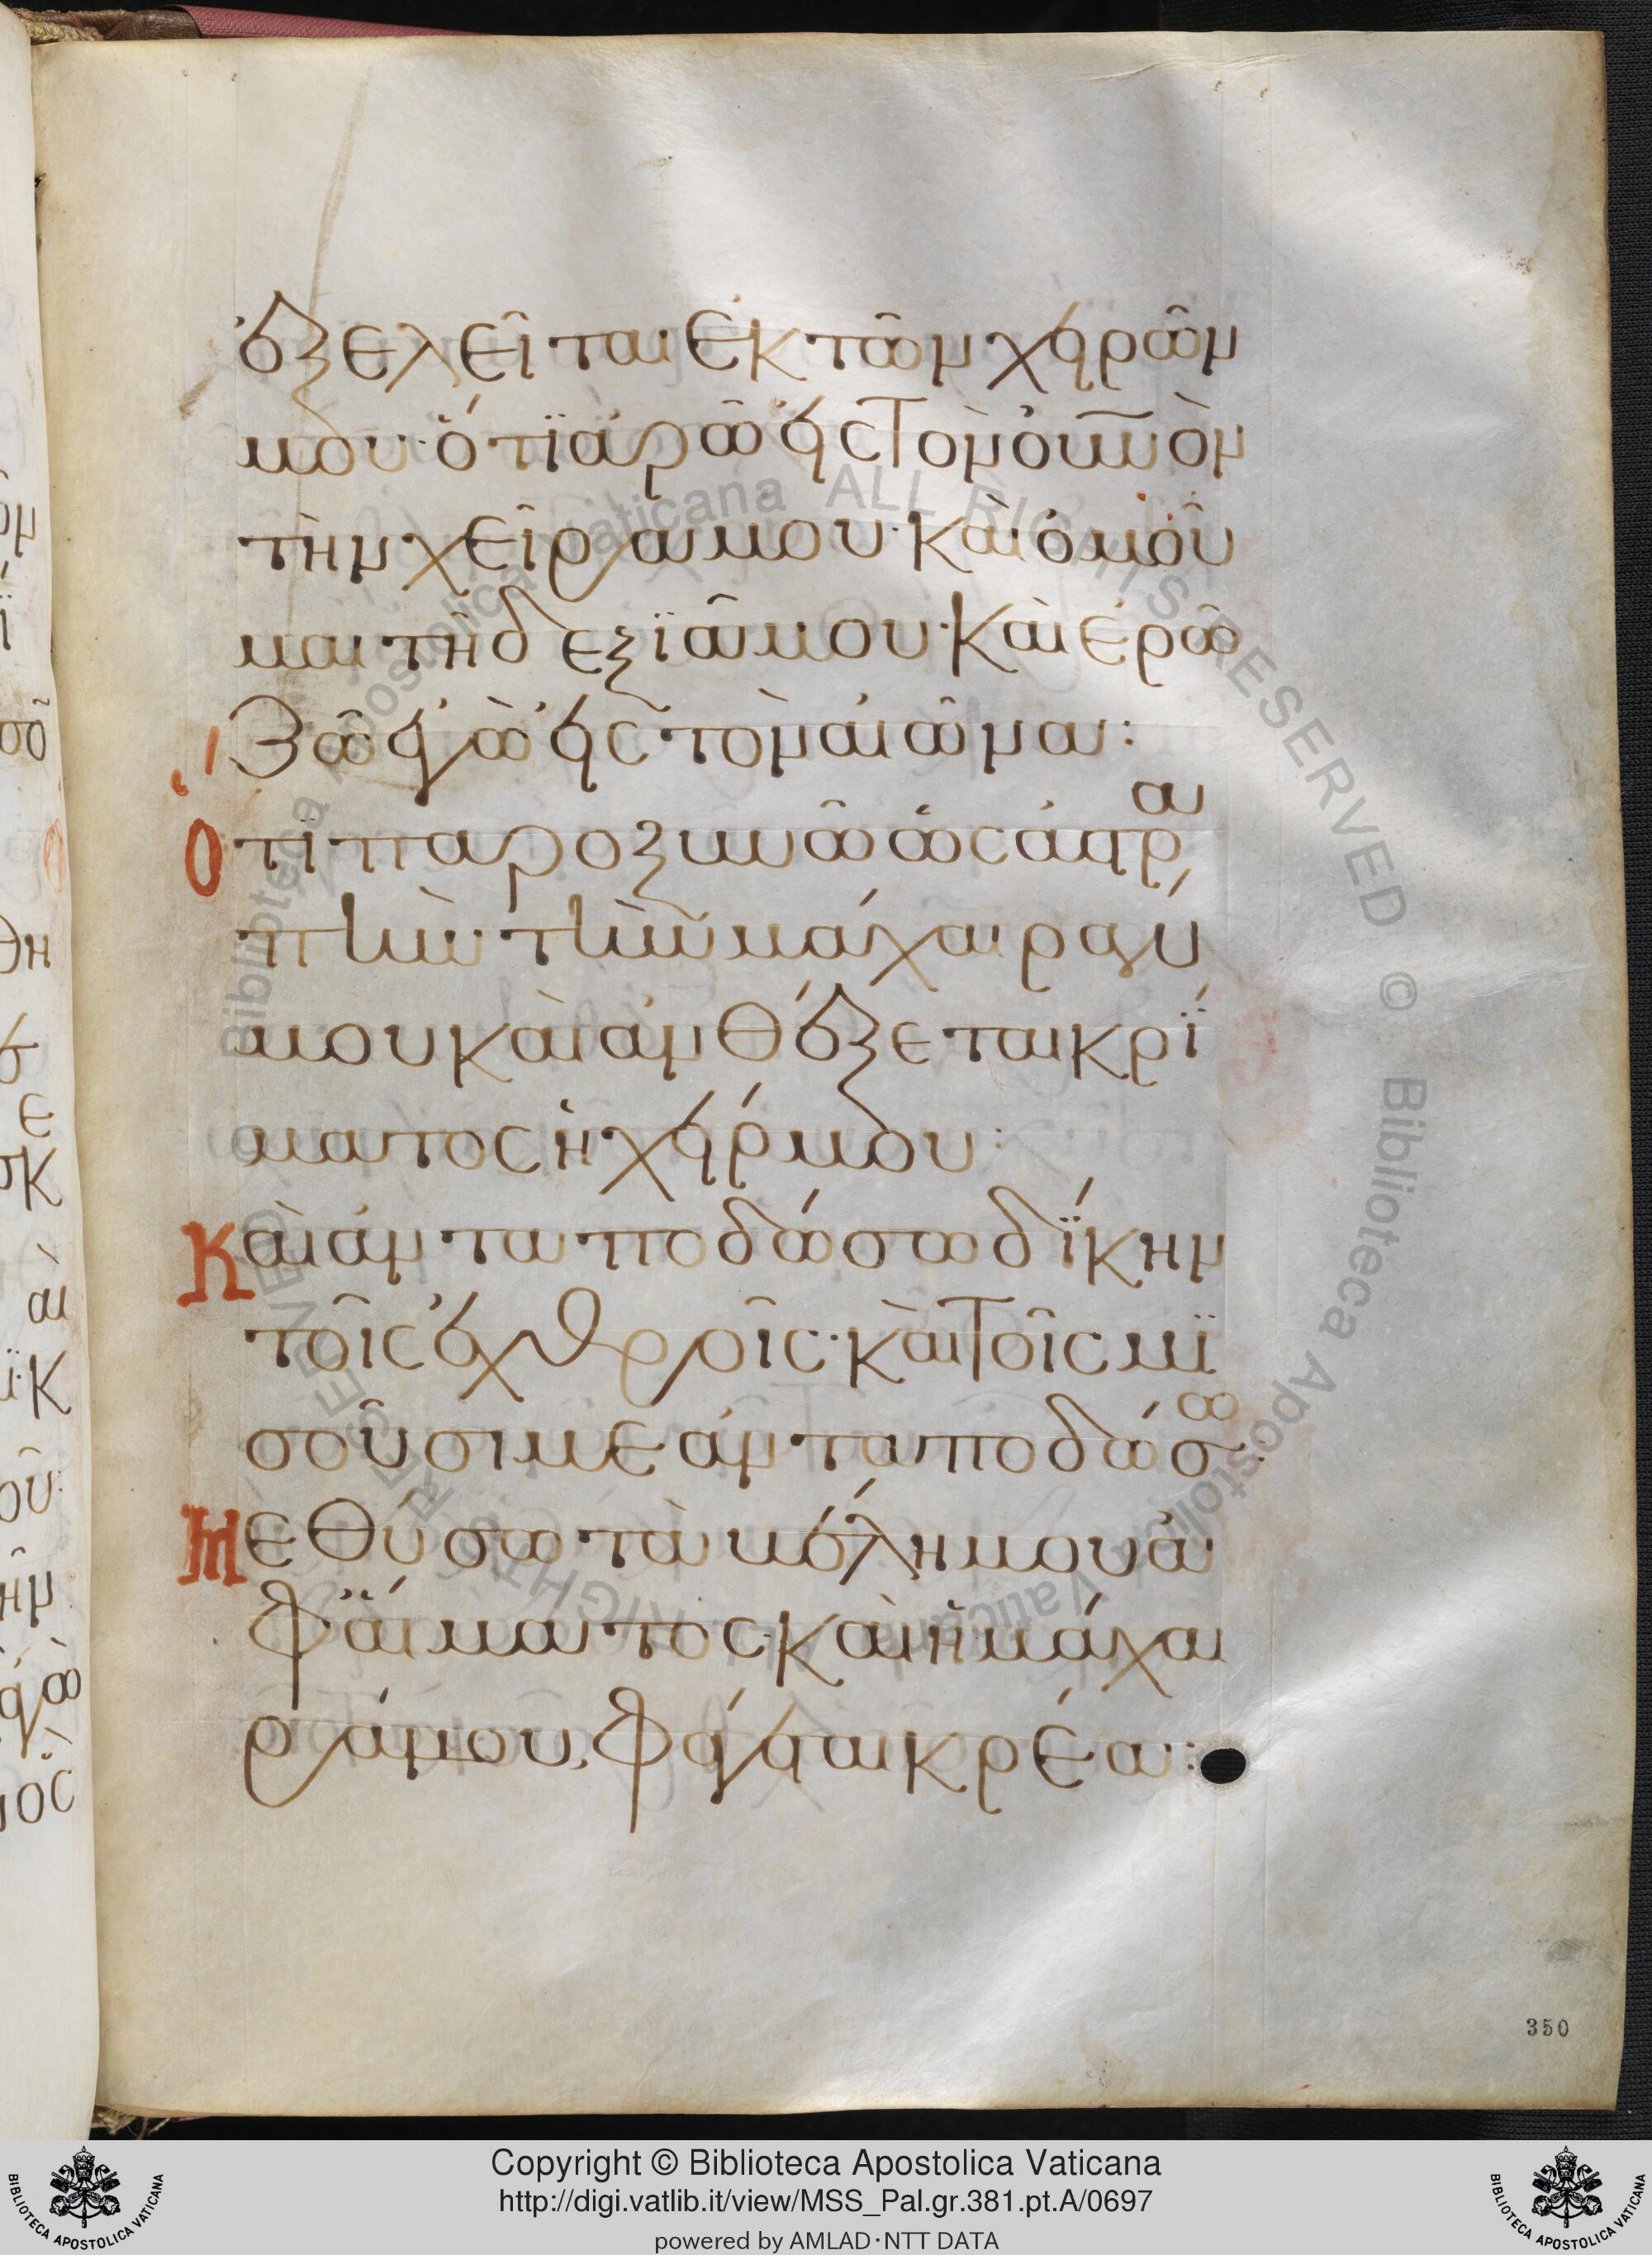 ἐξελεῖται ἐκ τῶν χειρῶν
μου· ὅτι ἀρῶ εἰς τὸν οὐνὸν
τὴν χεῖρα μου· καὶ ὀμοῦ
μαι τῆ δεξιᾶ μου· καὶ ἐρῶ
ζῶ ἐγὼ εἰς τὸν αἰῶνα:
Ὅτι παροξυνῶ ὡς ἀστρα
πὴν τὴν μάχαιραν
μου καὶ ἀνθέξεται κρί
ματος ἡ χείρ μου:
Καὶ ἀνταποδώσω δίκην
τοῖς ἐχθροῖς· καὶ τοῖς μι
σοῦσι με ἀνταποδώσω·
Μεθύσω τὰ βέλη μου ἀ
φ' αἵματος· καὶ ἡ μάχαι
ρά μου, φάγεται κρέα:
350
Biblioteca Apostolica Vaticana ALL RIGHTS RESERVED © Biblioteca Apostolica Vaticana ALL RIGHTS RESERVED
Copyright © Biblioteca Apostolica Vaticana
http://digi.vatlib.it/view/MSS_Pal.gr.381.pt.A/0697
powered by AMLAD·NTT DATA
BIBLIOTECA APOSTOLICA VATICANA
BIBLIOTECA APOSTOLICA VATICANA